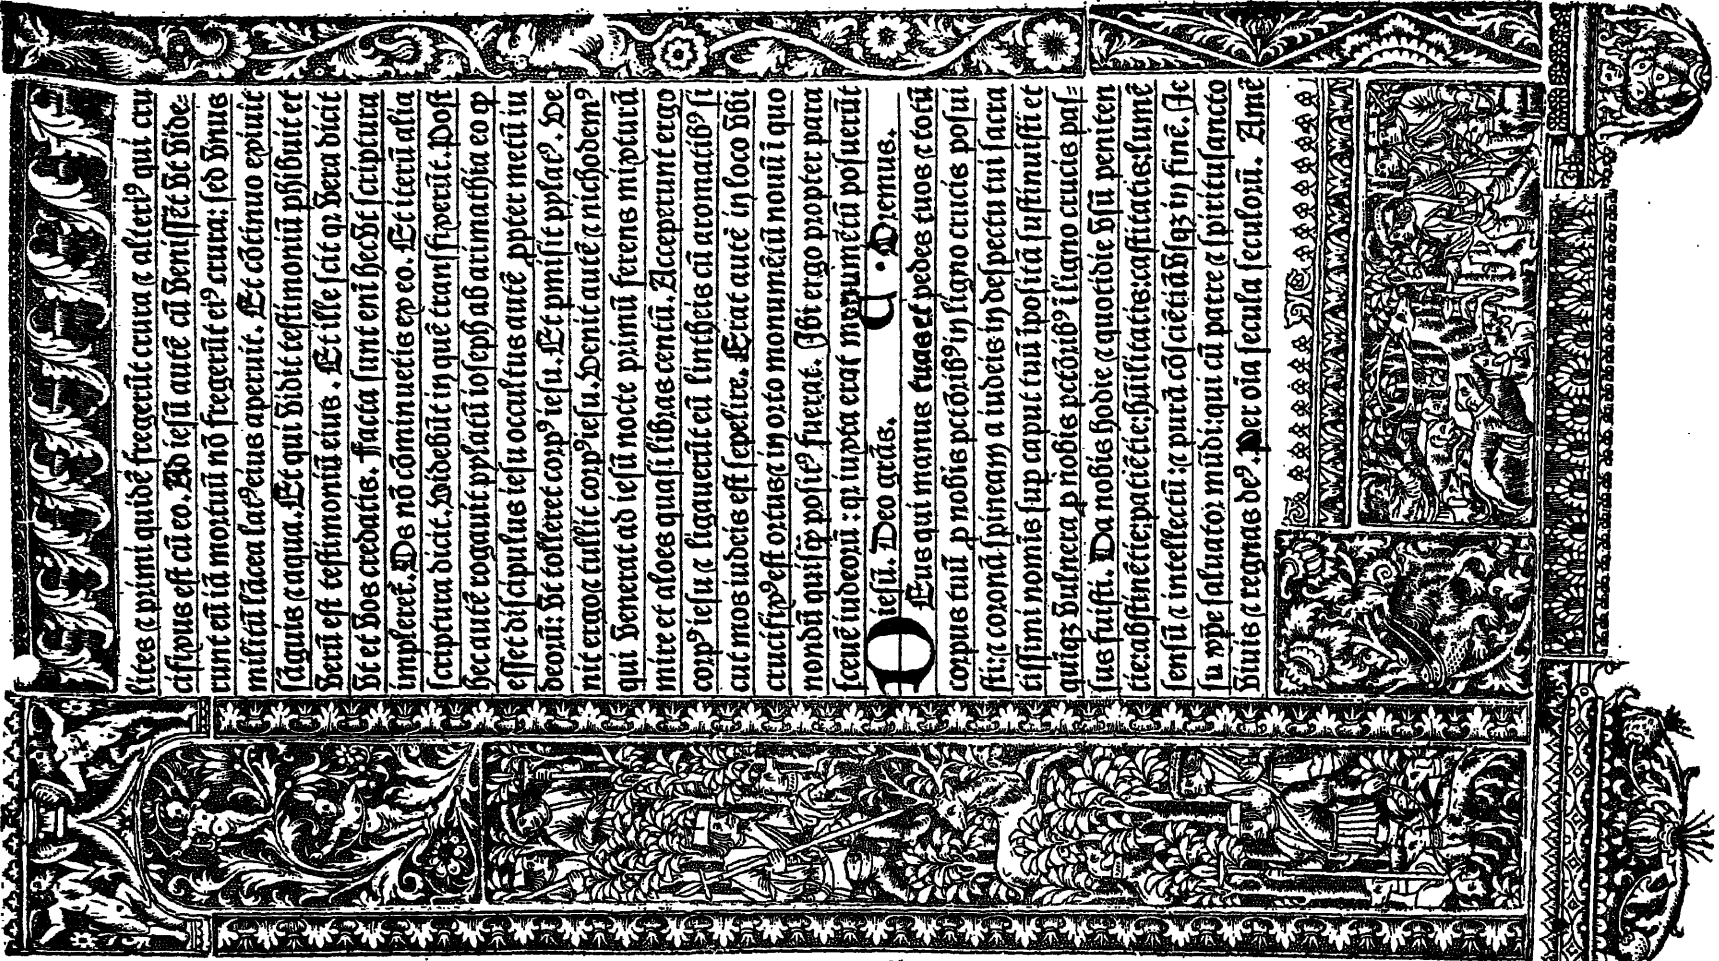 lites ⁊ primi quidē fregerūt crura ⁊ alteri⁹ qui cru
cifixus est cū eo. Ad iesū autē cū venissēt vt vide-
runt eū iā mortuū nō fregerūt ei⁹ crura: sed vnus
militū lācea lat⁹ eius aperuit. Et cōtinuo exiuit
sāguis ⁊ aqua. Et qui vidit testimoniū phibuit et
verū est testimoniū eius. Et ille scit qꝛ vera dicit
vt et vos credatis. Facta sunt enī hec vt scriptura
impleret̄. Os nō cōminuetis ex eo. Et iterū alia
scriptura dicit. Videbūt in quē transfixerūt. Post
hec autē rogauit pylatū ioseph ab arimathia eo ꝙ
esset discipulus iesu occultus autē ꝓpter metū iu
deorū: vt tolleret corp⁹ iesu. Et pmisit pylat⁹. Ve
nit ergo ⁊ tullit corp⁹ iesu. Venit autē ⁊ nichodem⁹
qui venerat ad iesū nocte primū ferens mixturā
mirre et aloes quasi libras centū. Acceperunt ergo
corp⁹ iesu ⁊ ligauerūt eū lintheis cū aromatib⁹ si
cut mos iudeis est sepelire. Erat autē in loco vbi
crucifix⁹ est ortus ⁊ in orto monumētū nouū ī quo
nondū quisꝙ̄ posit⁹ fuerat. Ibi ergo propter para
sceuē iudeorū: qꝛ iuxta erat monumētū posuerūt
iesū. Deo grās. Oremus.
Deus qui manus tuas et pedes tuos ⁊ totū
corpus tuū p nobis pctōrib⁹ in ligno crucis posui
sti: ⁊ coronā spineam a iudeis in despectu tui sacra
tissimi nomīs sup caput tuū īpositā sustinuisti et
quīqꝫ vulnera p nobis pctōrib⁹ ī ligno crucis pas-
sus fuisti. Da nobis hodie ⁊ quotidie vsū peniten
tie: abstinētie: patiētie: hūilitatis: castitatis: lumē
sensū ⁊ intellectū: ⁊ purā cōsciētiā vsqꝫ in finē. Ie
su xp̄e saluator mūdi: qui cū patre ⁊ spiritu sancto
viuis ⁊ regnas de⁹. Per oīa secula seculorū. Amē